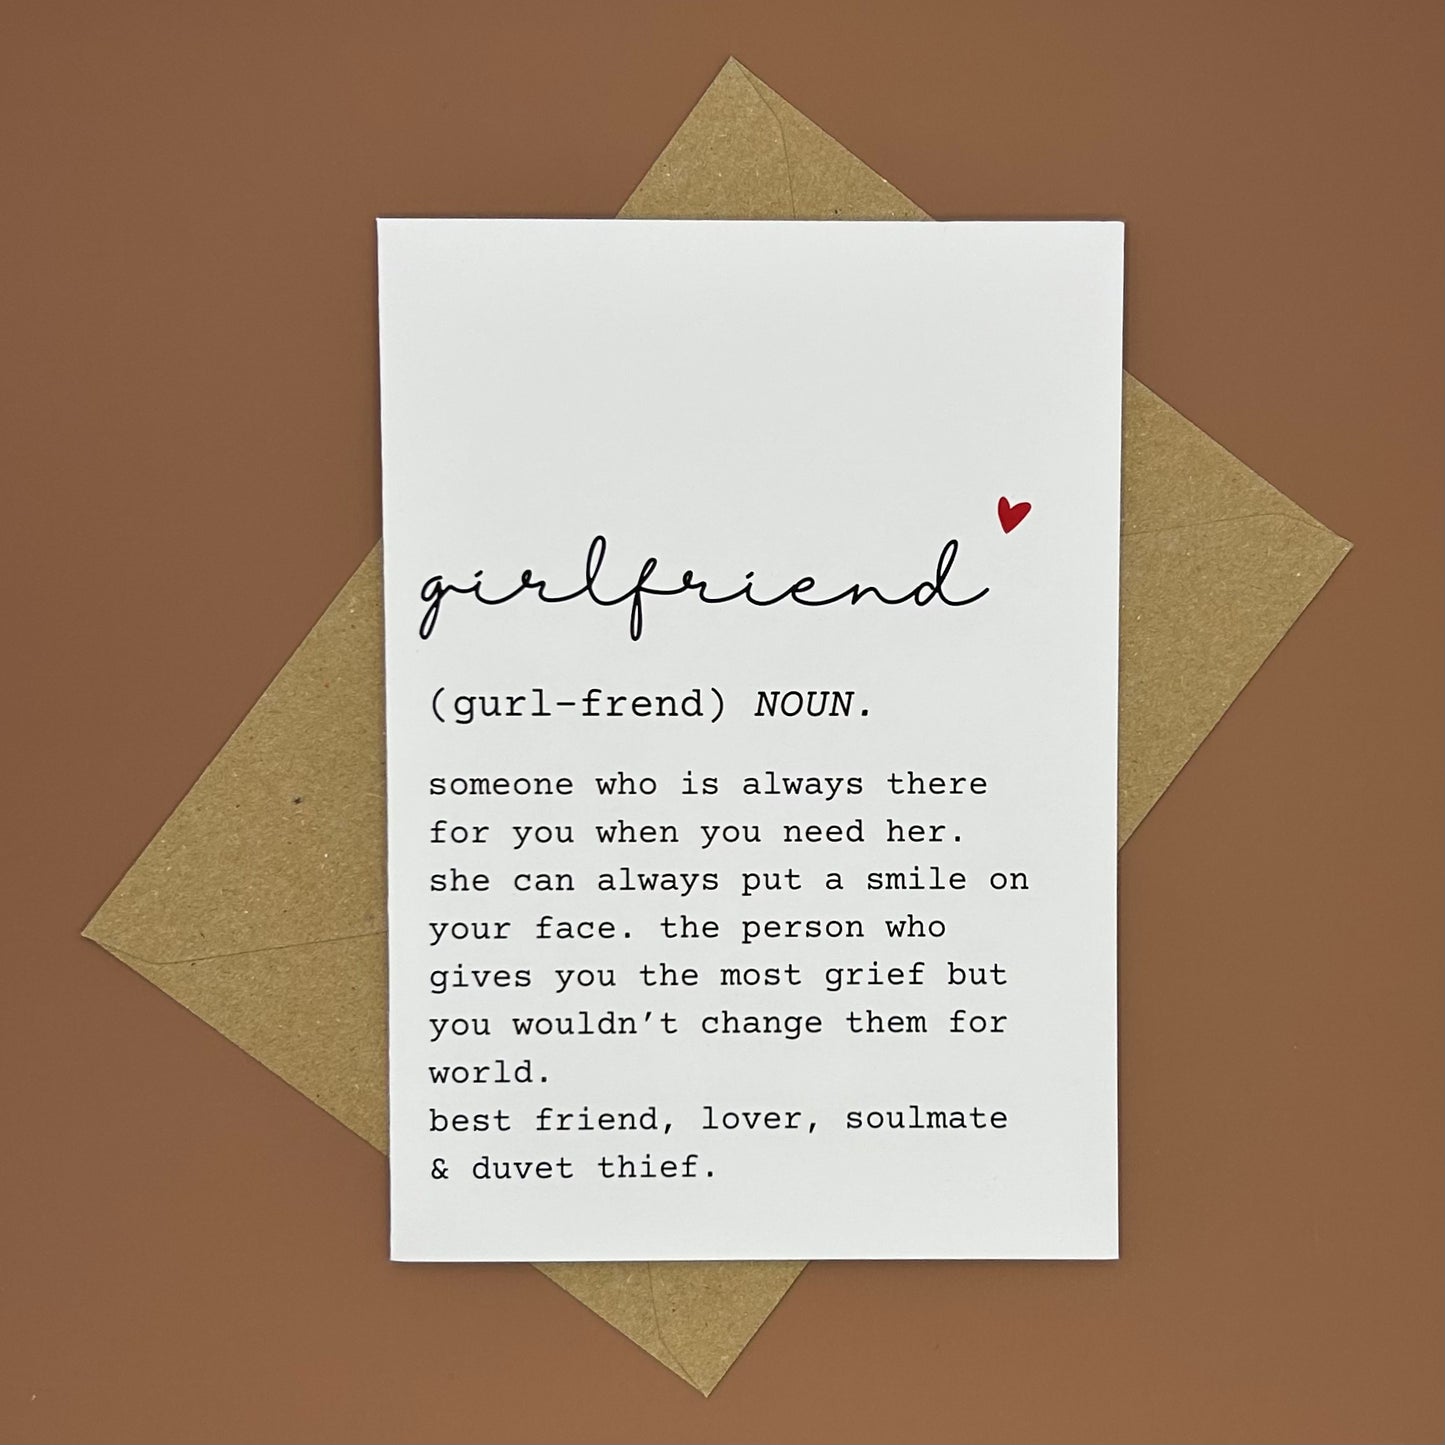 girlfriend
(gurl-frend) NOUN.
someone who is always there
for you when you need her.
she can always put a smile on
your face. the person who
gives you the most grief but
you wouldn’t change them for
world.
best friend, lover, soulmate
& duvet thief.